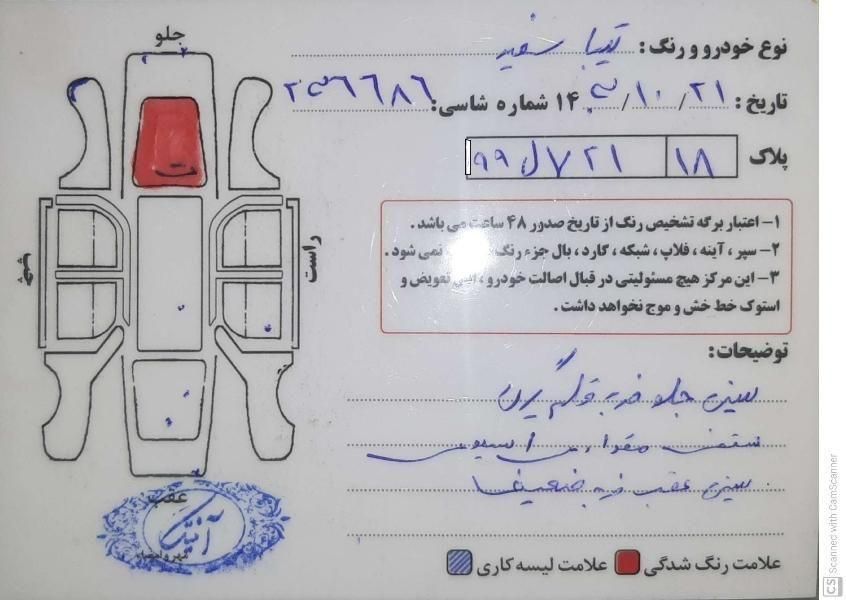 جلو
نوع خودرو و رنگ : تیبا سفید
تاریخ : ۲۱ / ۱۰ / ۱۴ شماره شاسی:
پلاک ۱۸ ۷۲۱ ل ۹۹
۱- اعتبار برگه تشخیص رنگ از تاریخ صدور ۴۸ ساعت می باشد .
۲- سپر ، آینه ، فلاپ ، شبکه ، گارد ، بال جزء رنگ نمی شود .
۳- این مرکز هیچ مسئولیتی در قبال اصالت خودرو ، تعویض و
استوک خط خش و موج نخواهد داشت .
راست
چپ
توضیحات:
سینی جلو ضربه
سقف
سینی عقب ضربه ضعیف
عقب
علامت رنگ شدگی علامت لیسه کاری
CS Scanned with CamScanner